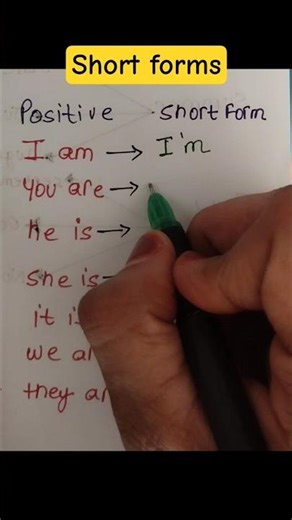 Short forms
Positive short form
I am → I'm
you are →
he is →
she is
it is
we
they